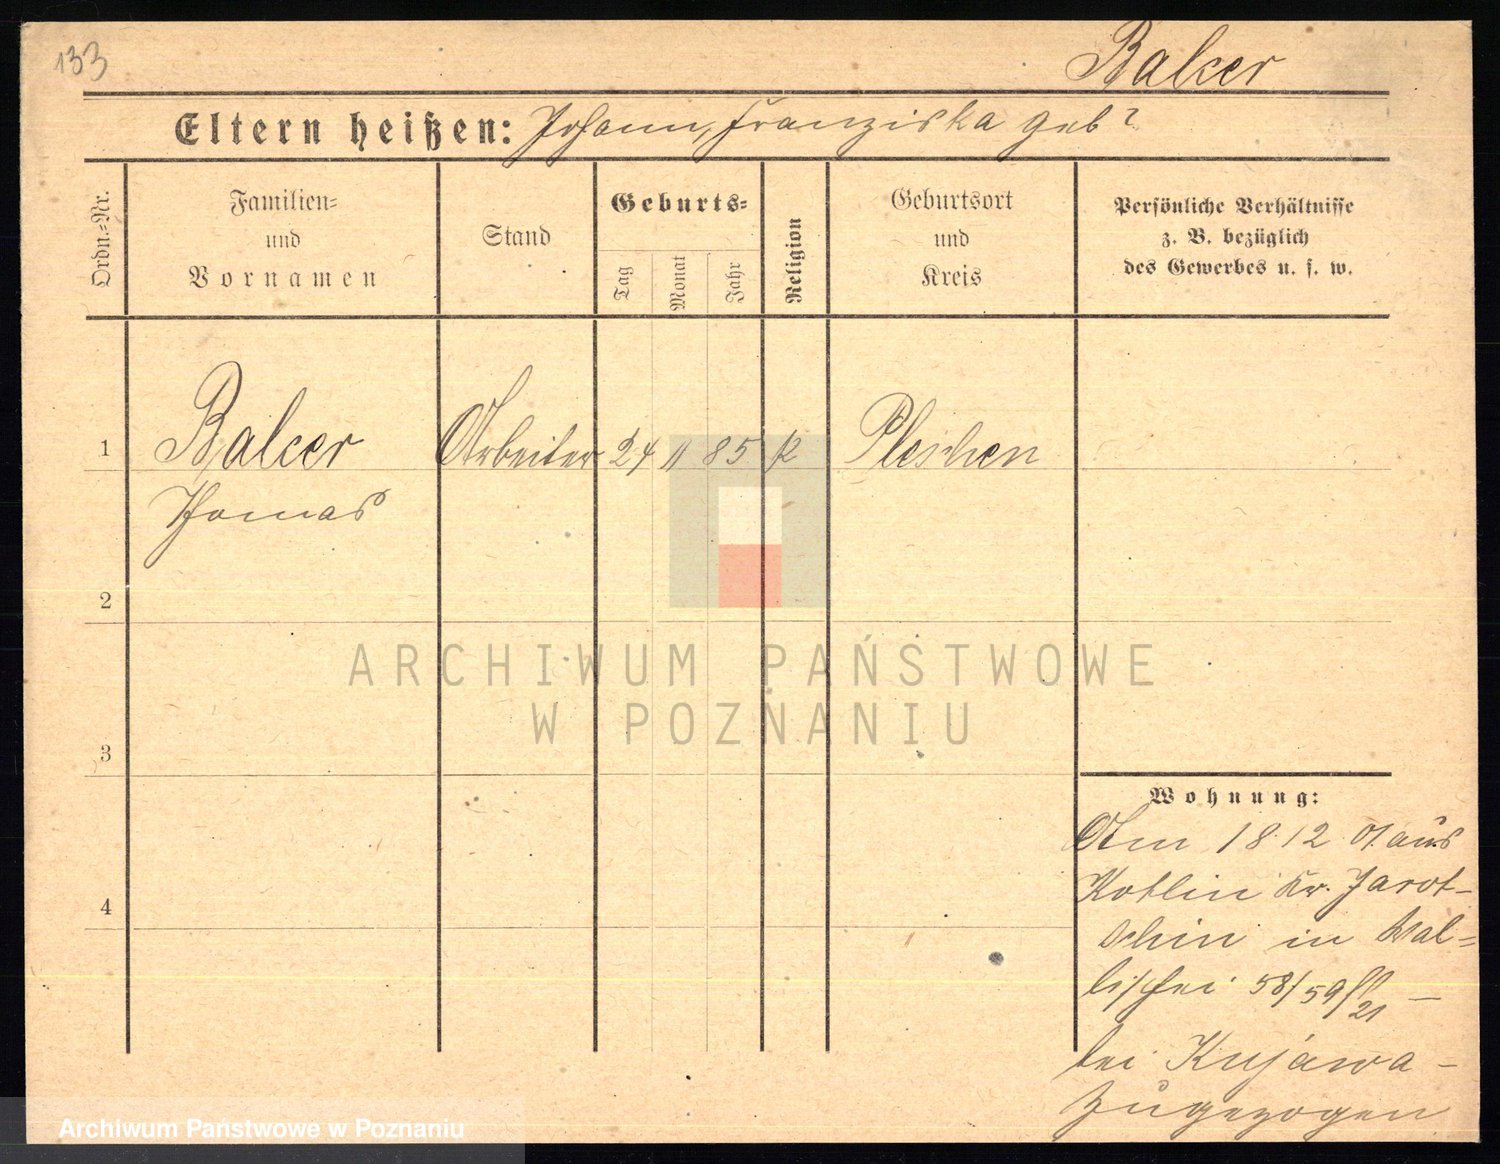 133
Balcer
Eltern heißen: Johann, Franziska geb?
Ordn.=Nr.
Familien=
und
Vornamen
Stand
Geburts=
Tag
Monat
Jahr
Religion
Geburtsort
und
Kreis
Persönliche Verhältnisse
z. B. bezüglich
des Gewerbes u. s. w.
1 Balcer Arbeiter 24 11 85 K Pleschen
Thomas
2
3
4
Wohnung:
Am 18.12 01 aus
Kotlin Kr. Jarot-
schin in Wal=
lischei 58/59
bei Kujawa -
zugezogen
ARCHIWUM PAŃSTWOWE
W POZNANIU
Archiwum Państwowe w Poznaniu